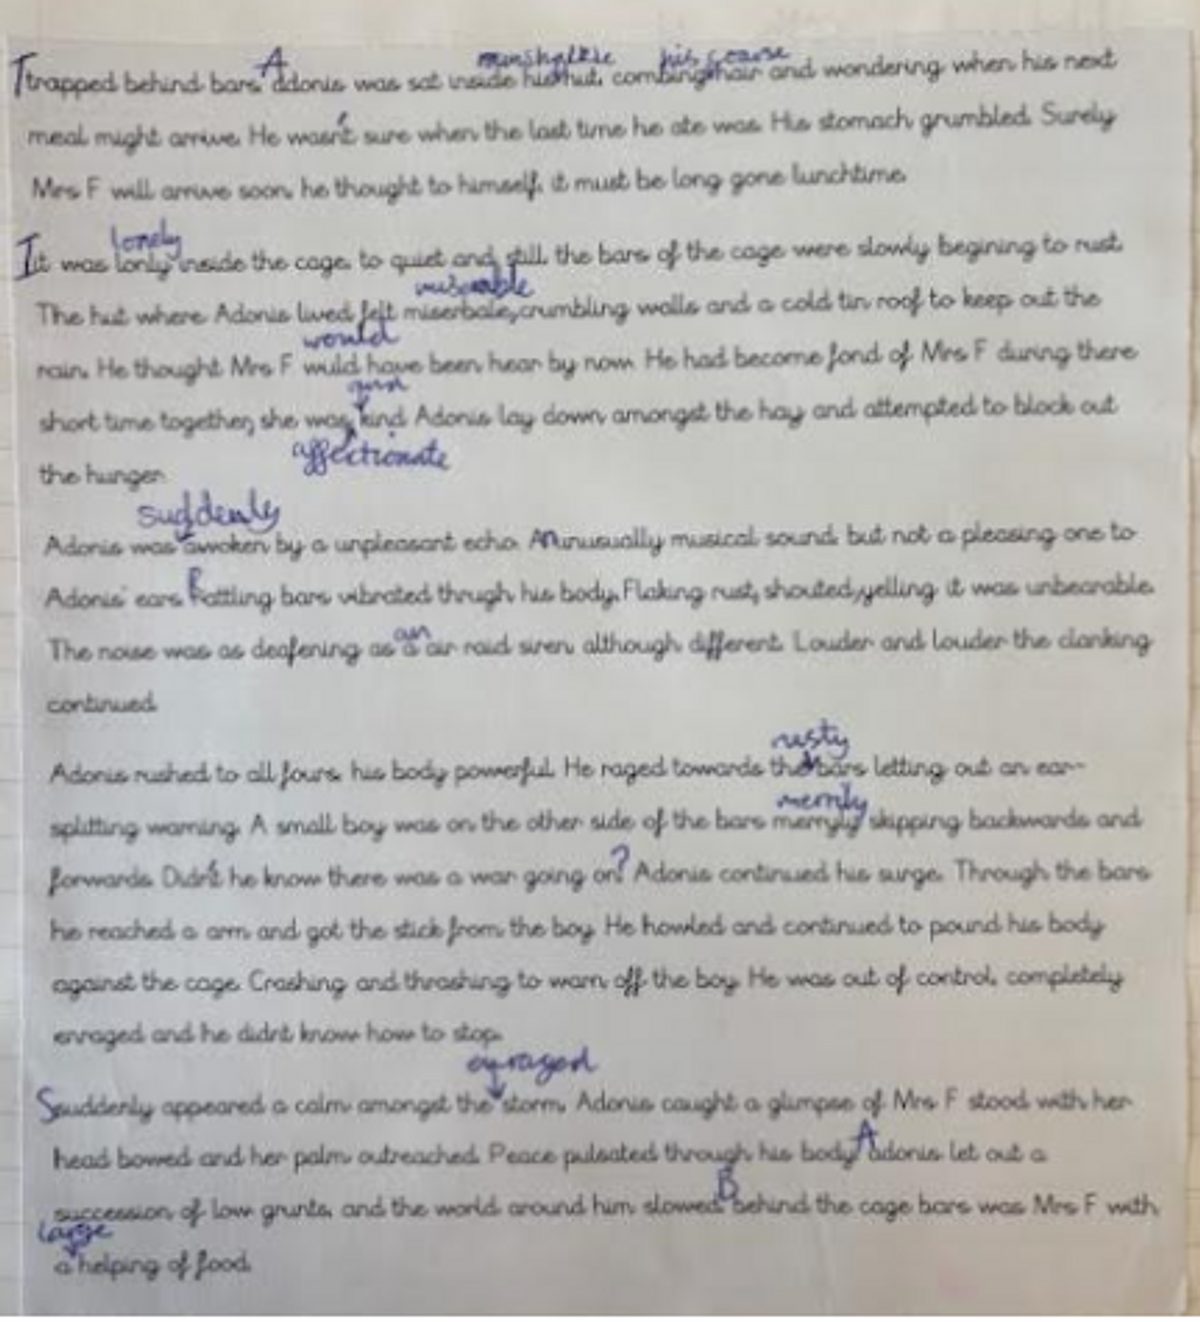 Ttrapped behind bars. A adonis was sat inside his hut, combing his coarse hair and wondering when his next
meal might arrive. He wasn't sure when the last time he ate was. His stomach grumbled. Surely
Mrs F will arrive soon, he thought to himself, it must be long gone lunchtime.
lonely
Iit was lonly inside the cage, to quiet and still, the bars of the cage were slowly begining to rust.
miserable
The hut where Adonis lived felt miserbale, crumbling walls and a cold tin roof to keep out the
would
rain. He thought Mrs F wuld have been hear by now. He had become fond of Mrs F during there
and
short time together, she was kind. Adonis lay down amongst the hay and attempted to block out
affectionate
the hunger.
suddenly
Adonis was awoken by a unpleasant echo. An unusually musical sound but not a pleasing one to
Adonis' ears. Rattling bars vibrated thrugh his body. Flaking rust, shouted, yelling it was unbearable.
an
The noise was as deafening as a air raid siren although different. Louder and louder the clanking
continued.
rusty
Adonis rushed to all fours, his body powerful. He raged towards the bars letting out an ear-
merrily
splitting warning. A small boy was on the other side of the bars merryly skipping backwards and
forwards. Didn't he know there was a war going on? Adonis continued his surge. Through the bars
he reached a arm and got the stick from the boy. He howled and continued to pound his body
against the cage. Crashing and thrashing to warn off the boy. He was out of control, completely
enraged and he didnt know how to stop.
Ssuddenly appeared a calm amongst the storm. Adonis caught a glimpse of Mrs F stood with her
head bowed and her palm outreached. Peace pulsated through his body A adonis let out a
succession of low grunts, and the world around him slowed B behind the cage bars was Mrs F with
large
a helping of food.